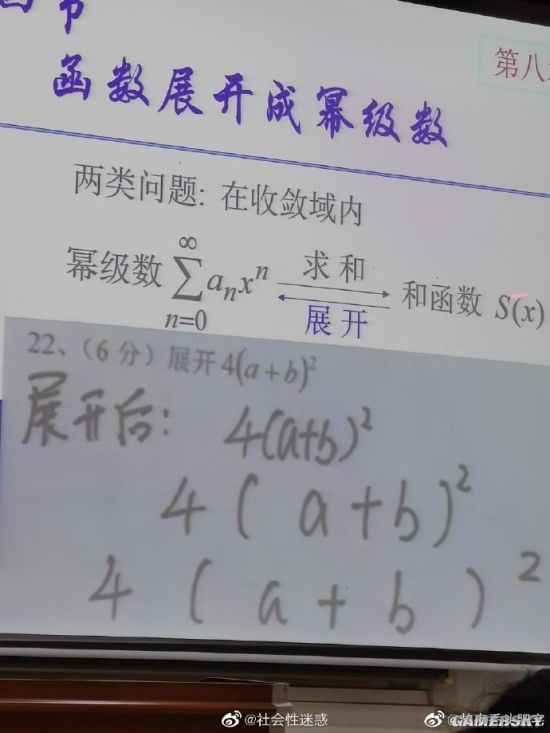 节
第八
函数展开成幂级数
两类问题: 在收敛域内
幂级数 ∞ ∑ n=0 aₙxⁿ 求和 展开 和函数 S(x)
22、（6分）展开4(a+b)²
展开后: 4(a+b)²
4 ( a + b )²
4 ( a + b ) ²
@社会性迷惑
GAMERSKY